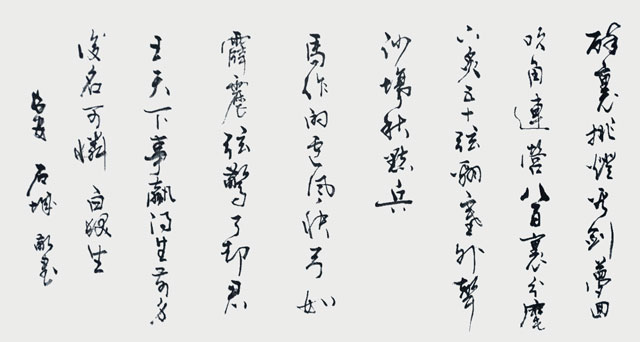 醉裏挑燈看劍夢回
吹角連營八百裏分麾
下炙五十弦翻塞外聲
沙場秋點兵
馬作的盧飛快弓如
霹靂弦驚了却君
王天下事贏得生前身
後名可憐白髮生
石城